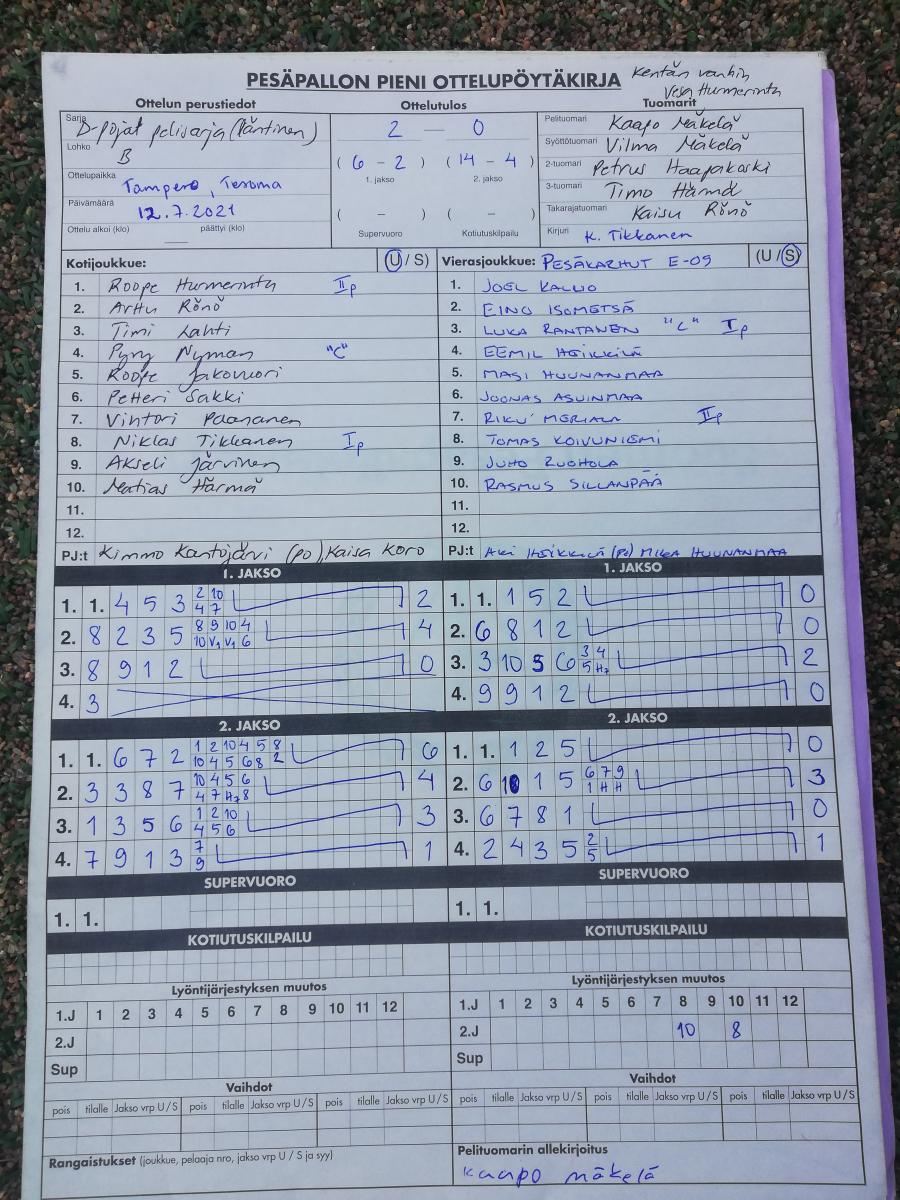 PESÄPALLON PIENI OTTELUPÖYTÄKIRJA
Kentän vanhin
Vesa Hurmerinta
Ottelun perustiedot
Sarja D-pojat pelisarja (Läntinen)
Lohko B
Ottelupaikka Tampere, Tesoma
Päivämäärä 12.7.2021
Ottelu alkoi (klo) päättyi (klo)
Ottelutulos
2 – 0
( 6 – 2 ) ( 14 – 4 )
1. jakso 2. jakso
( – ) ( – )
Supervuoro Kotiutuskilpailu
Tuomarit
Pelituomari Kaapo Mäkelä
Syöttötuomari Vilma Mäkelä
2-tuomari Petrus Haapakoski
3-tuomari Timo Härmä
Takarajatuomari Kaisu Rönö
Kirjuri K. Tikkanen
Kotijoukkue: (U / S)
1. Roope Hurmerinta IIp
2. Arttu Rönö
3. Timi Lahti
4. Pyry Nyman "C"
5. Roope Jakovuori
6. Petteri Sakki
7. Vihtori Paananen
8. Niklas Tikkanen Ip
9. Akseli Järvinen
10. Matias Härmä
11.
12.
PJ:t Kimmo Kantojärvi (PO), Kaisa Koro
Vierasjoukkue: PESÄKARHUT E-09 (U / S)
1. JOEL KALLIO
2. EINO ISOMETSÄ
3. LUKA RANTANEN "C" Ip
4. EEMIL HEIKKILÄ
5. MASI HUUNANMAA
6. JOONAS ASUINMAA
7. RIKU MERIALA IIp
8. TOMAS KOIVUNIEMI
9. JUHO RUOHOLA
10. RASMUS SILLANPÄÄ
11.
12.
PJ:t AKI HEIKKILÄ (PO) MIKA HUUNANMAA
1. JAKSO
1. 1. 4 5 3 2 10 2
4 7
2. 8 2 3 5 8 9 10 4 4
10 V1 V1 6
3. 8 9 1 2 0
4. 3
2. JAKSO
1. 1. 6 7 2 1 2 10 4 5 8 6
10 4 5 6 8 2
2. 3 3 8 7 10 4 5 6 4
4 7 H2 8
3. 1 3 5 6 1 2 10 3
4 5 6
4. 7 9 1 3 7 1
9
SUPERVUORO
1. 1.
KOTIUTUSKILPAILU
Lyöntijärjestyksen muutos
1.J 1 2 3 4 5 6 7 8 9 10 11 12
2.J
Sup
Vaihdot
pois tilalle Jakso vrp U / S pois tilalle Jakso vrp U / S pois tilalle Jakso vrp U / S
Rangaistukset (joukkue, pelaaja nro, jakso vrp U / S ja syy)
1. JAKSO
1. 1. 1 5 2 0
2. 6 8 1 2 0
3. 3 10 5 6 3 4 2
5 H2
4. 9 9 1 2 0
2. JAKSO
1. 1. 1 2 5 0
2. 6 10 1 5 6 7 9 3
1 H H
3. 6 7 8 1 0
4. 2 4 3 5 2 1
5
SUPERVUORO
1. 1.
KOTIUTUSKILPAILU
Lyöntijärjestyksen muutos
1.J 1 2 3 4 5 6 7 8 9 10 11 12
2.J 10 8
Sup
Vaihdot
pois tilalle Jakso vrp U / S pois tilalle Jakso vrp U / S pois tilalle Jakso vrp U / S
Pelituomarin allekirjoitus
Kaapo mäkelä